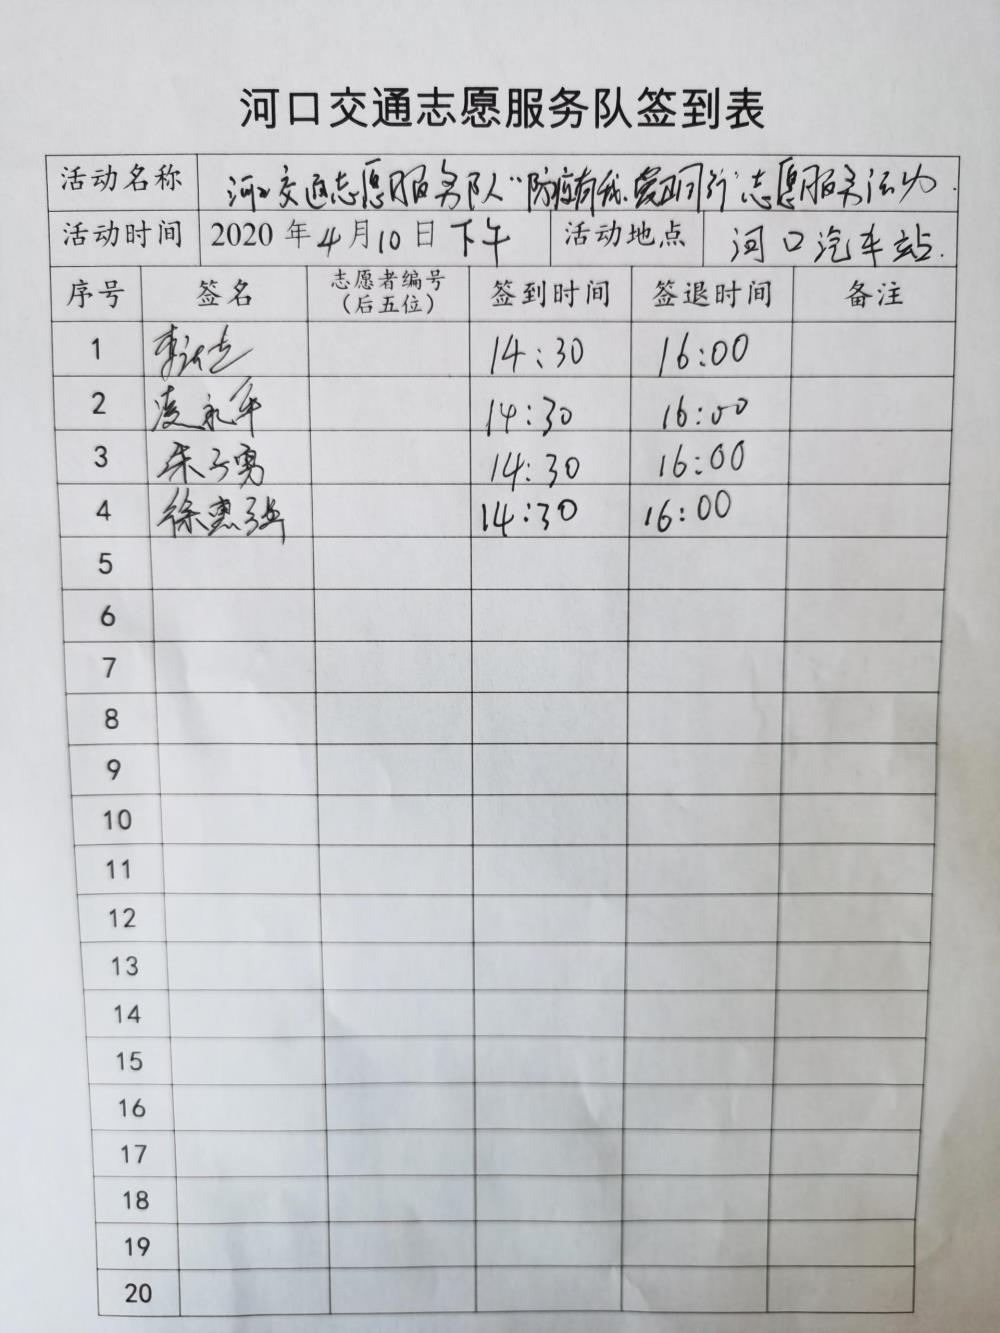 河口交通志愿服务队签到表
活动名称 河口交通志愿服务队“防疫有我、爱卫同行”志愿服务活动.
活动时间 2020年4月10日下午 活动地点 河口汽车站.
序号 签名 志愿者编号（后五位） 签到时间 签退时间 备注
1 14:30 16:00
2 凌永平 14:30 16:00
3 朱子勇 14:30 16:00
4 徐惠强 14:30 16:00
5
6
7
8
9
10
11
12
13
14
15
16
17
18
19
20